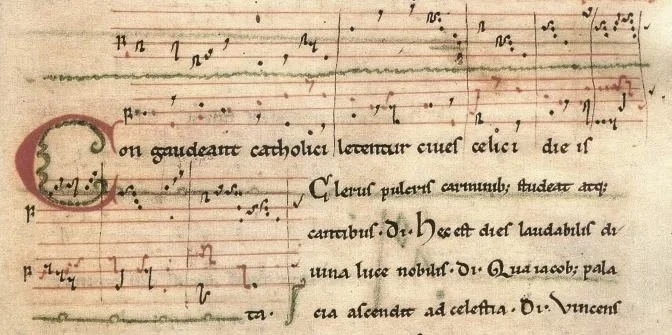 Congaudeant catholici letentur ciues celici die is
Clerus pulcris carminib; studeat atq;
cantibus · Di · Hec est dies laudabilis di
uina luce nobilis · Di · Qua iacob; pala
ta. cia ascendit ad celestia · Di · Vincens